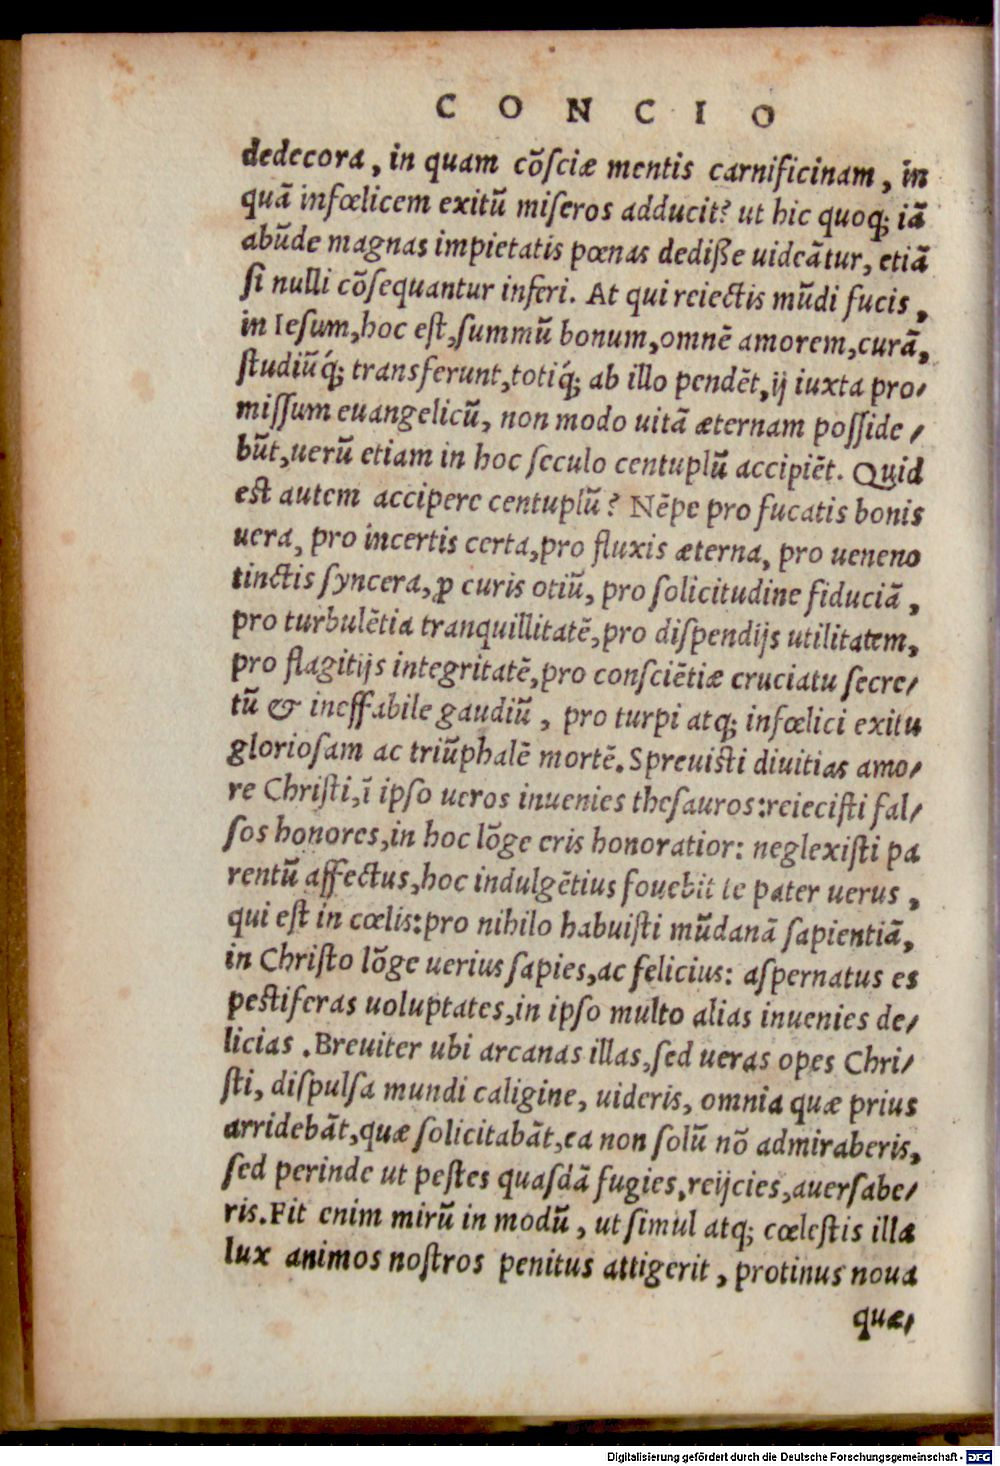 CONCIO
dedecora, in quam cõſciæ mentis carnificinam, in
quã infœlicem exitũ miſeros adducit? ut hic quoq; iã
abũde magnas impietatis pœnas dediſſe uideãtur, etiã
ſi nulli cõſequantur inferi. At qui reiectis mũdi fucis,
in Ieſum, hoc eſt, ſummũ bonum, omnẽ amorem, curã,
ſtudiũq́; transferunt, totiq́; ab illo pendẽt, ij iuxta pro/
miſſum euangelicũ, non modo uitã æternam poſſide/
bũt, uerũ etiam in hoc ſeculo centuplũ accipiẽt. Quid
eſt autem accipere centuplũ? Nẽpe pro fucatis bonis
uera, pro incertis certa, pro fluxis æterna, pro ueneno
tinctis ſyncera, ꝓ curis otiũ, pro ſolicitudine fiduciã,
pro turbulẽtia tranquillitatẽ, pro diſpendijs utilitatem,
pro flagitijs integritatẽ, pro conſciẽtiæ cruciatu ſecre/
tũ & ineffabile gaudiũ, pro turpi atq; infœlici exitu
glorioſam ac triũphalẽ mortẽ. Spreuiſti diuitias amo/
re Chriſti, ĩ ipſo ueros inuenies theſauros: reieciſti fal/
ſos honores, in hoc lõge eris honoratior: neglexiſti pa
rentũ affectus, hoc indulgẽtius fouebit te pater uerus,
qui eſt in cœlis: pro nihilo habuiſti mũdanã ſapientiã,
in Chriſto lõge uerius ſapies, ac felicius: aſpernatus es
peſtiferas uoluptates, in ipſo multo alias inuenies de/
licias. Breuiter ubi arcanas illas, ſed ueras opes Chri/
ſti, diſpulſa mundi caligine, uideris, omnia quæ prius
arridebãt, quæ ſolicitabãt, ea non ſolũ nõ admiraberis,
ſed perinde ut peſtes quaſdã fugies, reijcies, auerſabe/
ris. Fit enim mirũ in modũ, ut ſimul atq; cœleſtis illa
lux animos noſtros penitus attigerit, protinus noua
quæ/
Digitalisierung gefördert durch die Deutsche Forschungsgemeinschaft - DFG